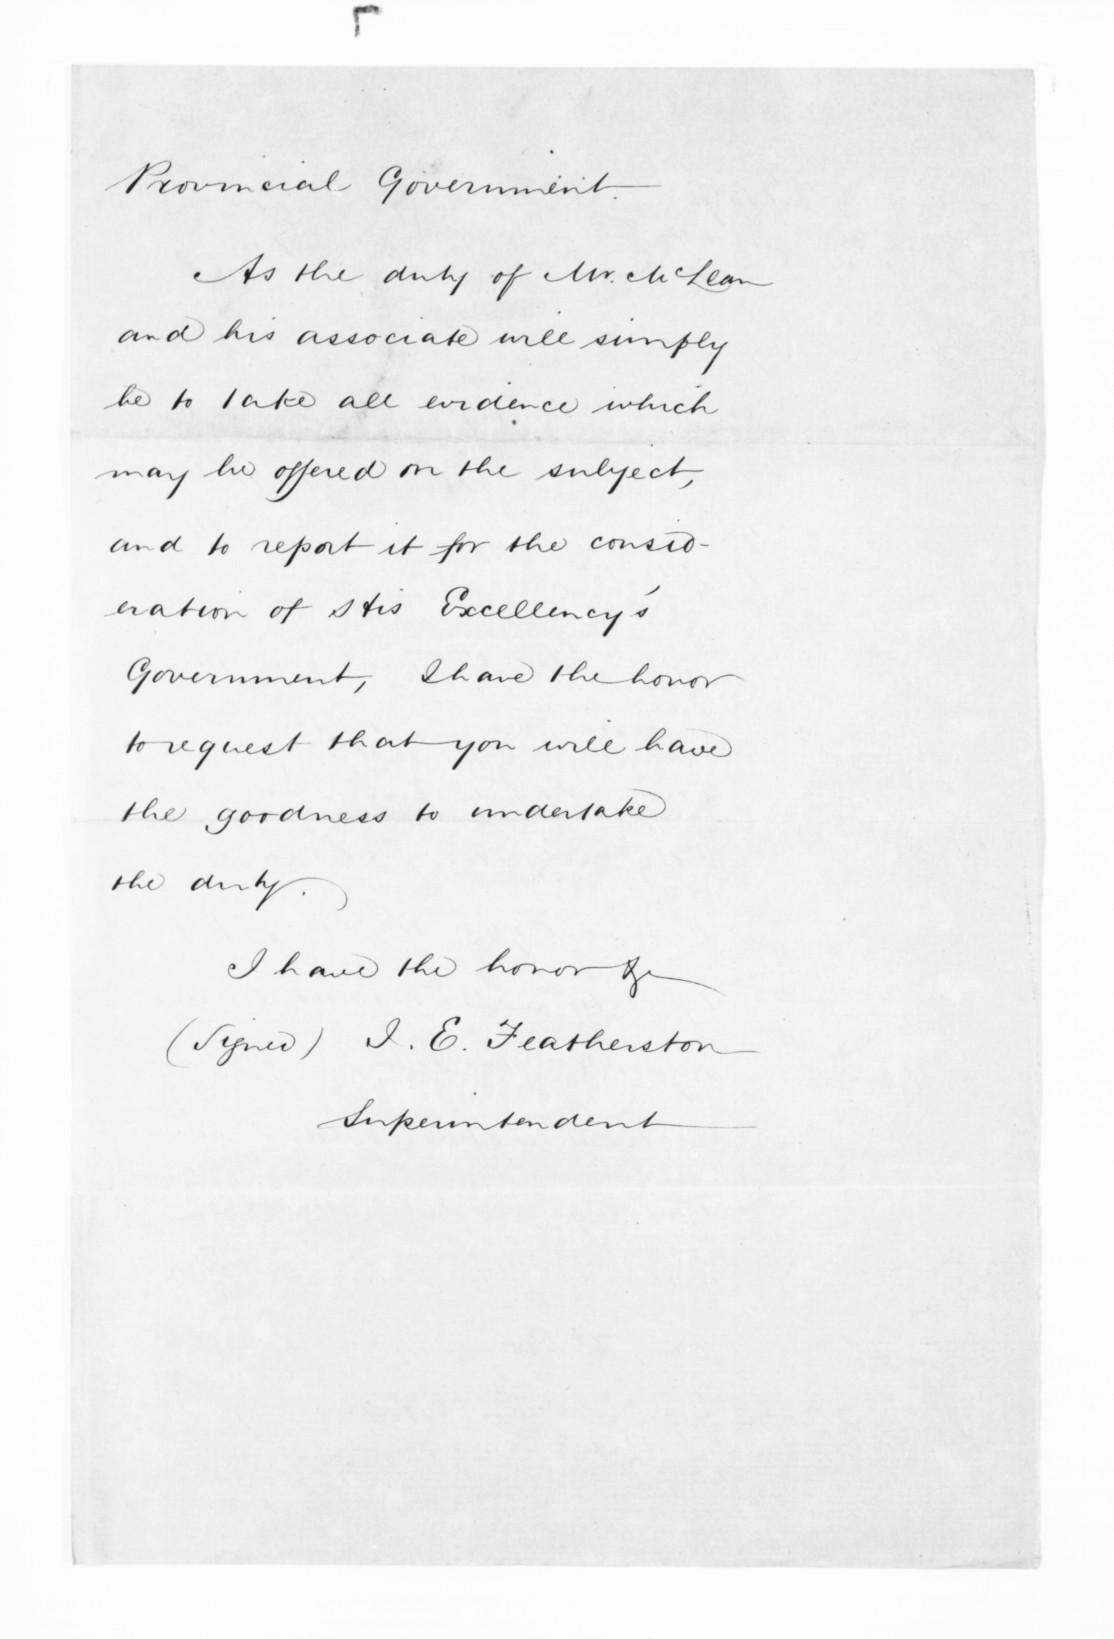 Provincial Government.
As the duty of Mr. McLean
and his associate will simply
be to take all evidence which
may be offered on the subject,
and to report it for the consid-
eration of His Excellency's
Government, I have the honor
to request that you will have
the goodness to undertake
the duty.
I have the honor &c
(Signed) I. E. Featherston
Superintendent